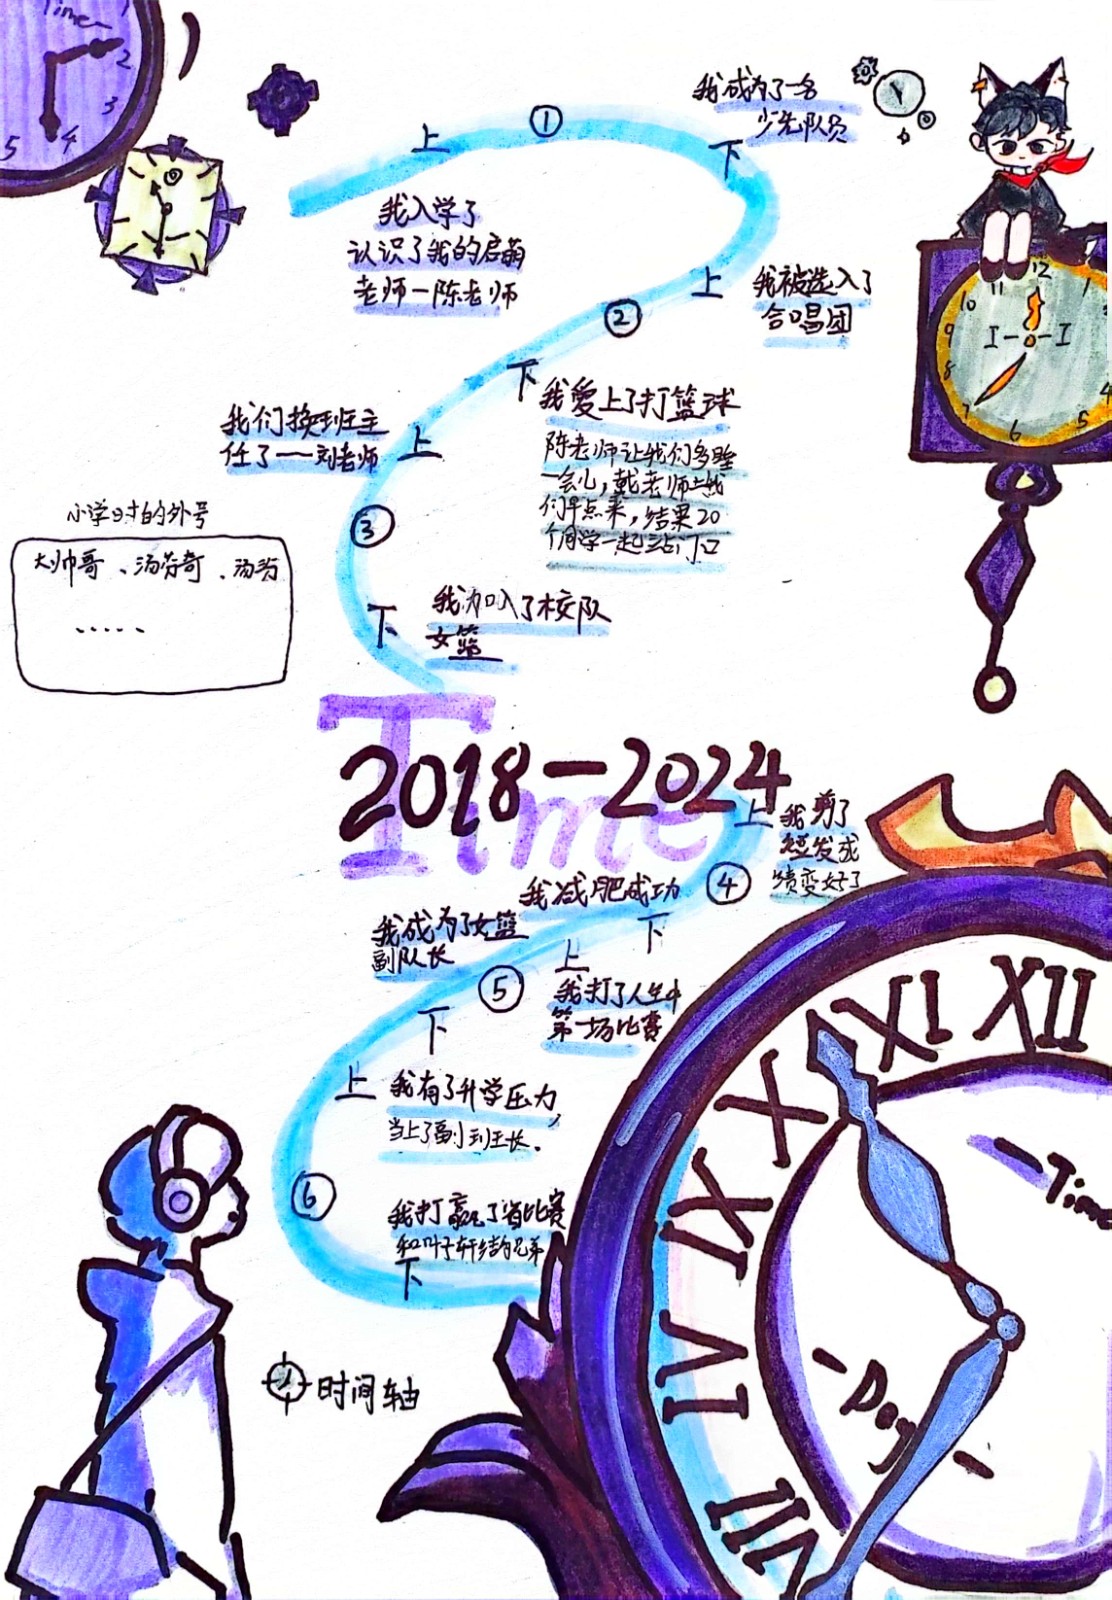 Time
1
2
3
4
5
我成为了一名
少先队员
上
①
下
我入学了
认识了我的启萌
老师—陈老师
上
我被选入了
合唱团
②
下
我爱上了打篮球
陈老师让我们多睡
一会儿，戴老师让我
们早点来，结果20
个同学一起站门口
12
11
10
9
8
7
6
5
4
1
I
I
我们换班主
任了——刘老师
上
③
小学时的外号
大帅哥、汤芬奇、汤汤
......
下
我加入了校队
女篮
Time
2018-2024
上
我剪了
短发成
绩变好了
④
我减肥成功
下
我成为了女篮
副队长
上
⑤
我打了人生中
第一场比赛
下
上
我有了升学压力，
当上了副班长。
⑥
我打赢了省比赛
和叶子轩结为兄弟
下
时间轴
XII
XI
X
IX
IV
VII
-Time
-Dog-